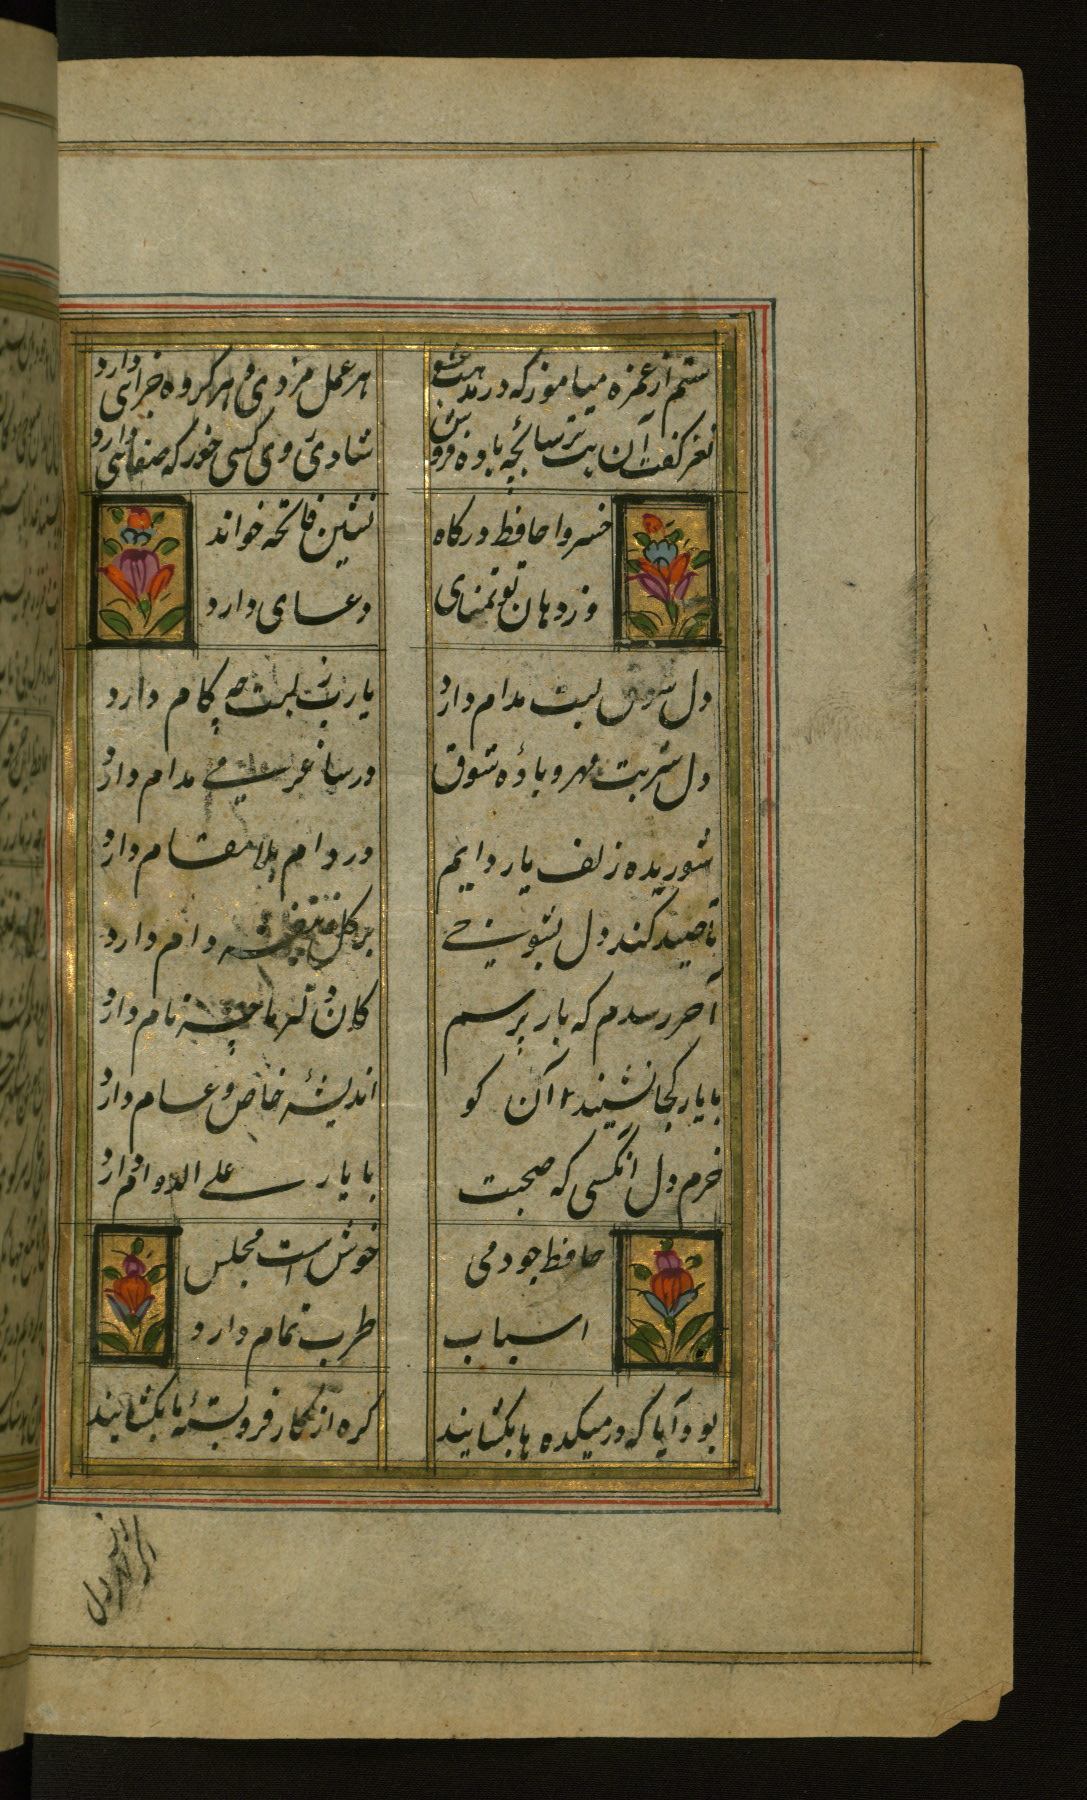 ستم از غمزه میاموز که در مذهب عشق
هر عمل مزدی و هر کرده جزایی دارد
نغز کفت آن بت ترسابچه باده فروش
شادی روی کسی خور که صفایی دارد
خسروا حافظ درکاه
نشین فاتحه خواند
وز دهان تو تمنای
دعای دارد
دل شوق لبت مدام دارد
یارب ز لبت چه کام دارد
دل شربت مهر و باده شوق
در ساغر می مدام دارد
شوریده زلف یار دایم
در دام بلا مقام دارد
تا صید کند دل بشوخی
بر کل بنفشه دام دارد
آخر رسدم که باز پرسم
کان تا چه نام دارد
با یار کجا نشیند آن کو
اندیشه خاص و عام دارد
خرم دل انکسی که صحبت
با یار علی الدوام دارد
حافظ چو دمی
خوش است مجلس
اسباب
طرب تمام دارد
بود آیا که در میکده ها بکشایند
کره از کار فروبسته ما بکشایند
اکر از دل